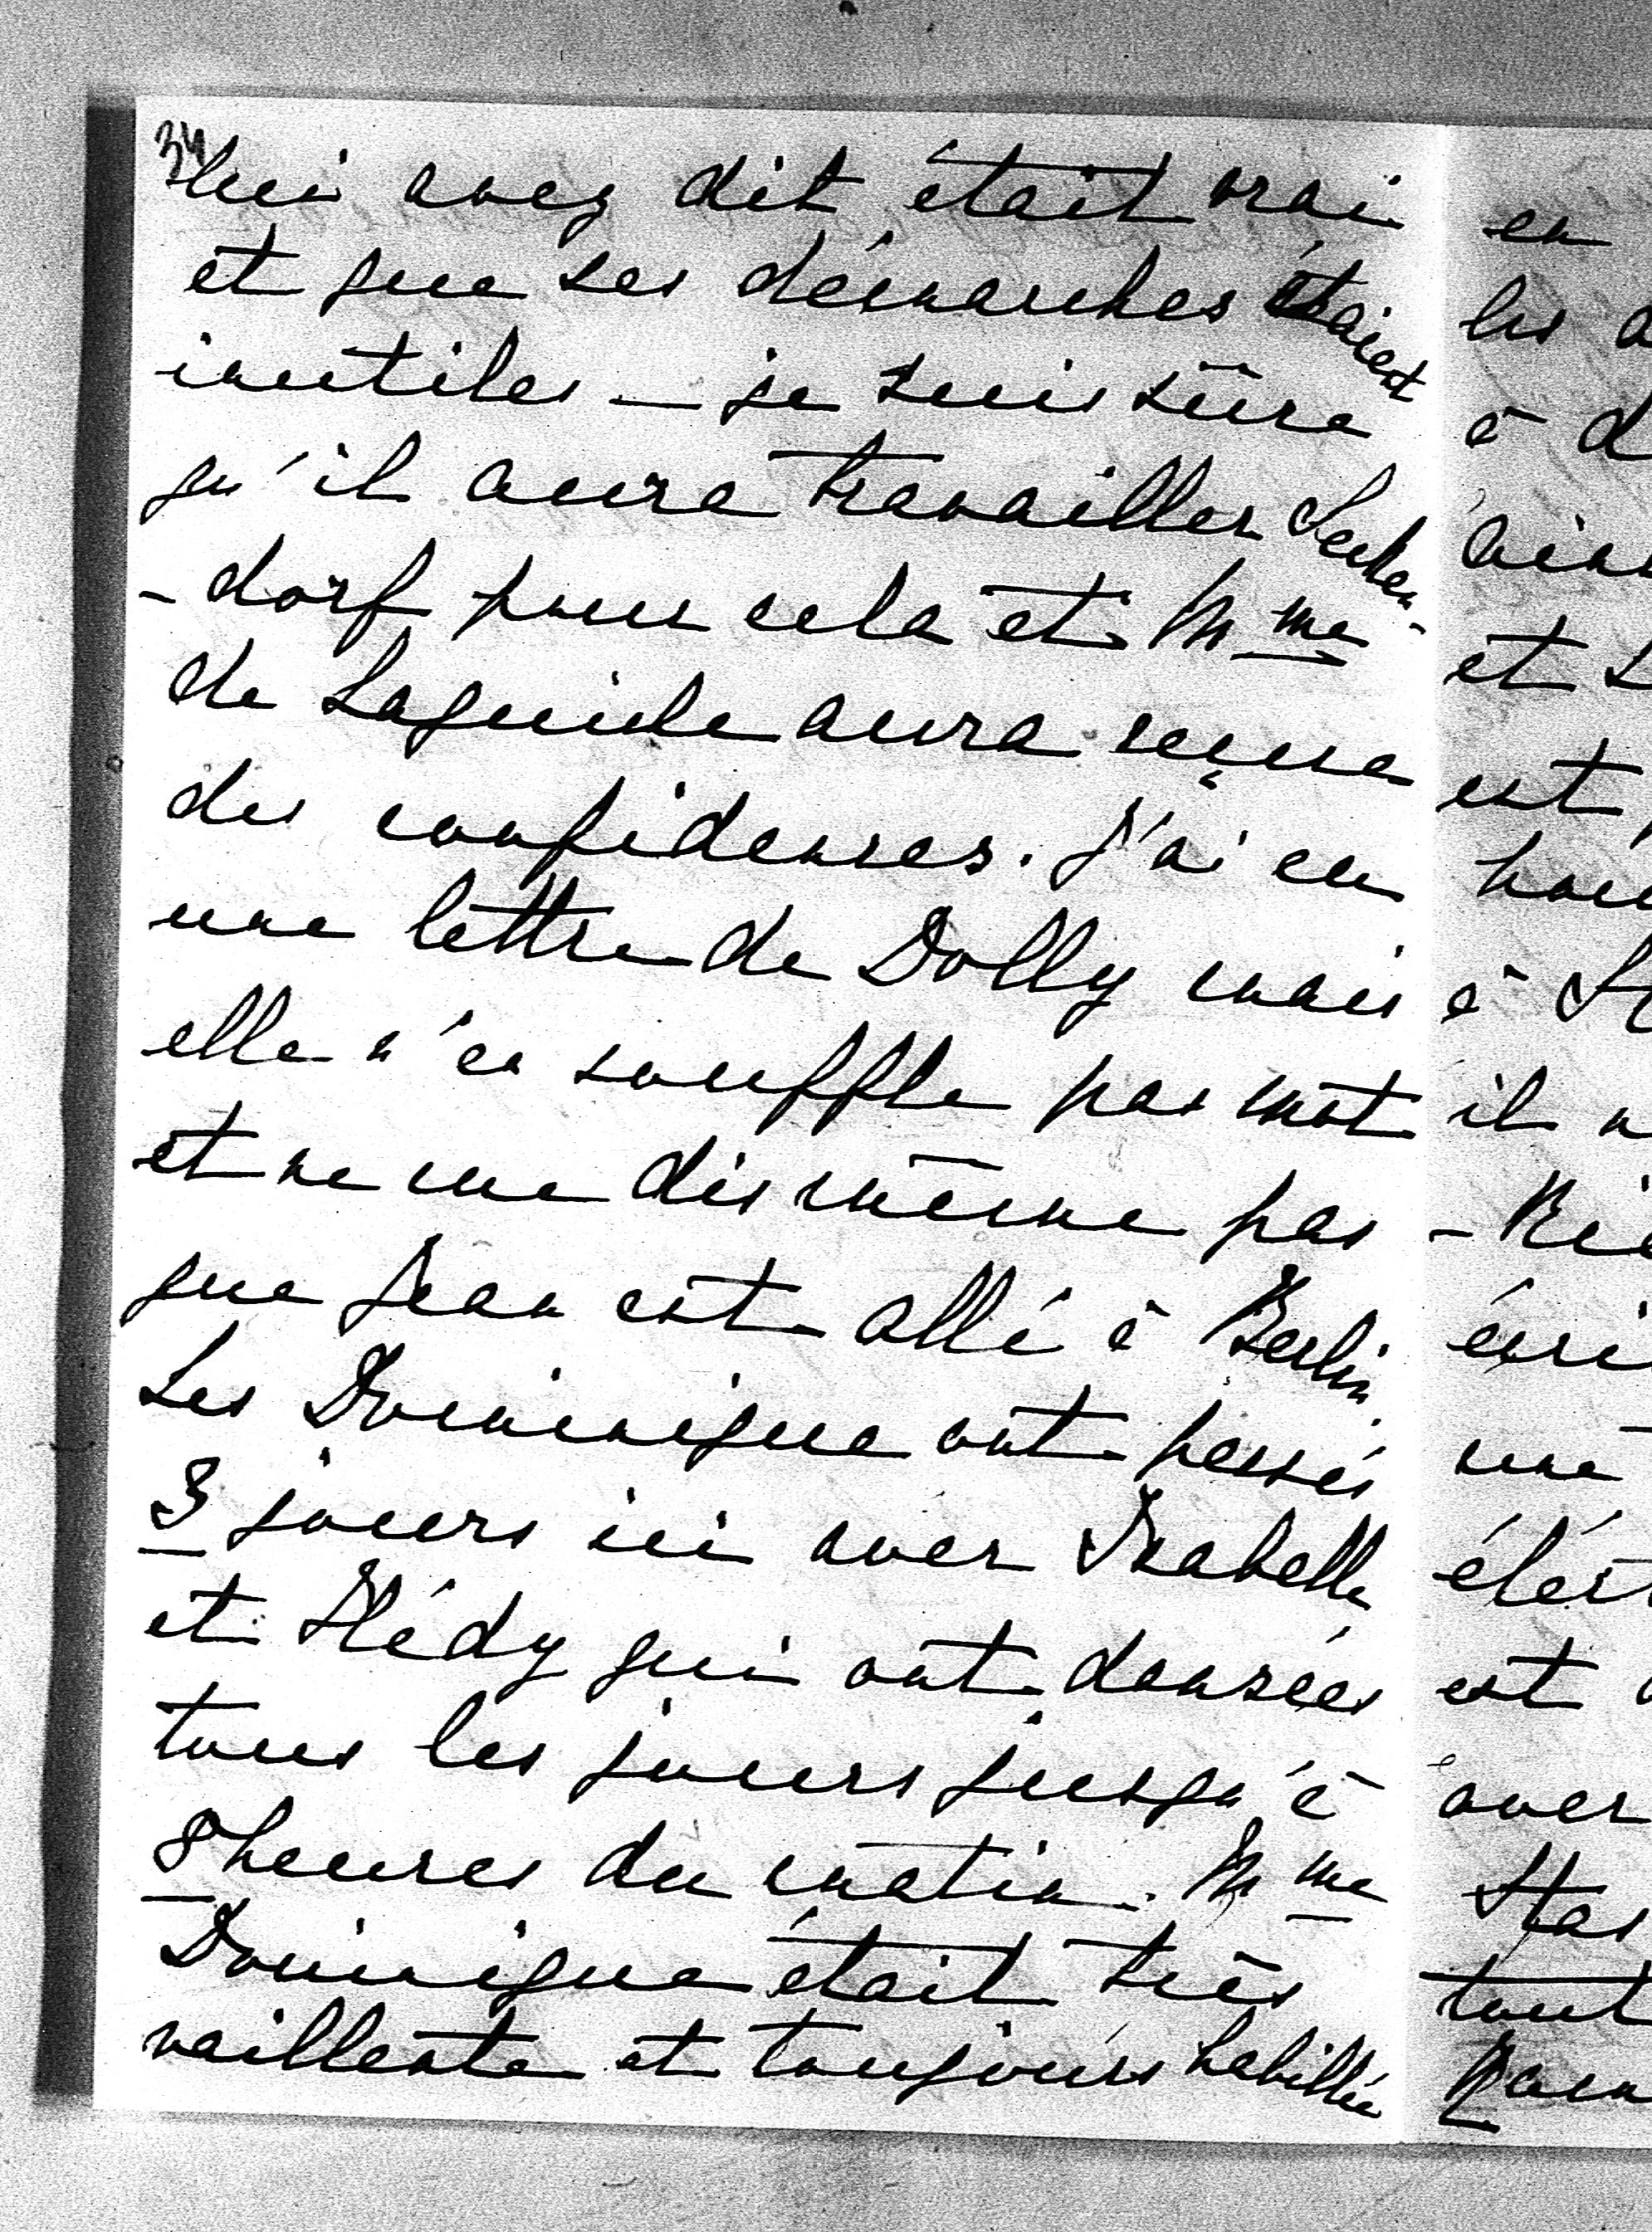 34
lui avez dit était vrai
et que ses démarches étaient
inutiles – je suis sûre
qu'il aura travailler Secken-
-dorf pour cela et Mme
de Laguiche aura reçue
des confidences. J'ai eu
une lettre de Dolly mais
elle n'en souffle pas mot
et ne me dis même pas
que Jean est allé à Berlin.
Les Dominique ont passés
3 jours ici avec Isabelle
et Hédy qui ont dansées
tous les jours jusqu'à
8 heures du matin. Mme
Dominique était très
vaillante et toujours habillée
en
les
à
et
est
à
il
une
est
avec
tout